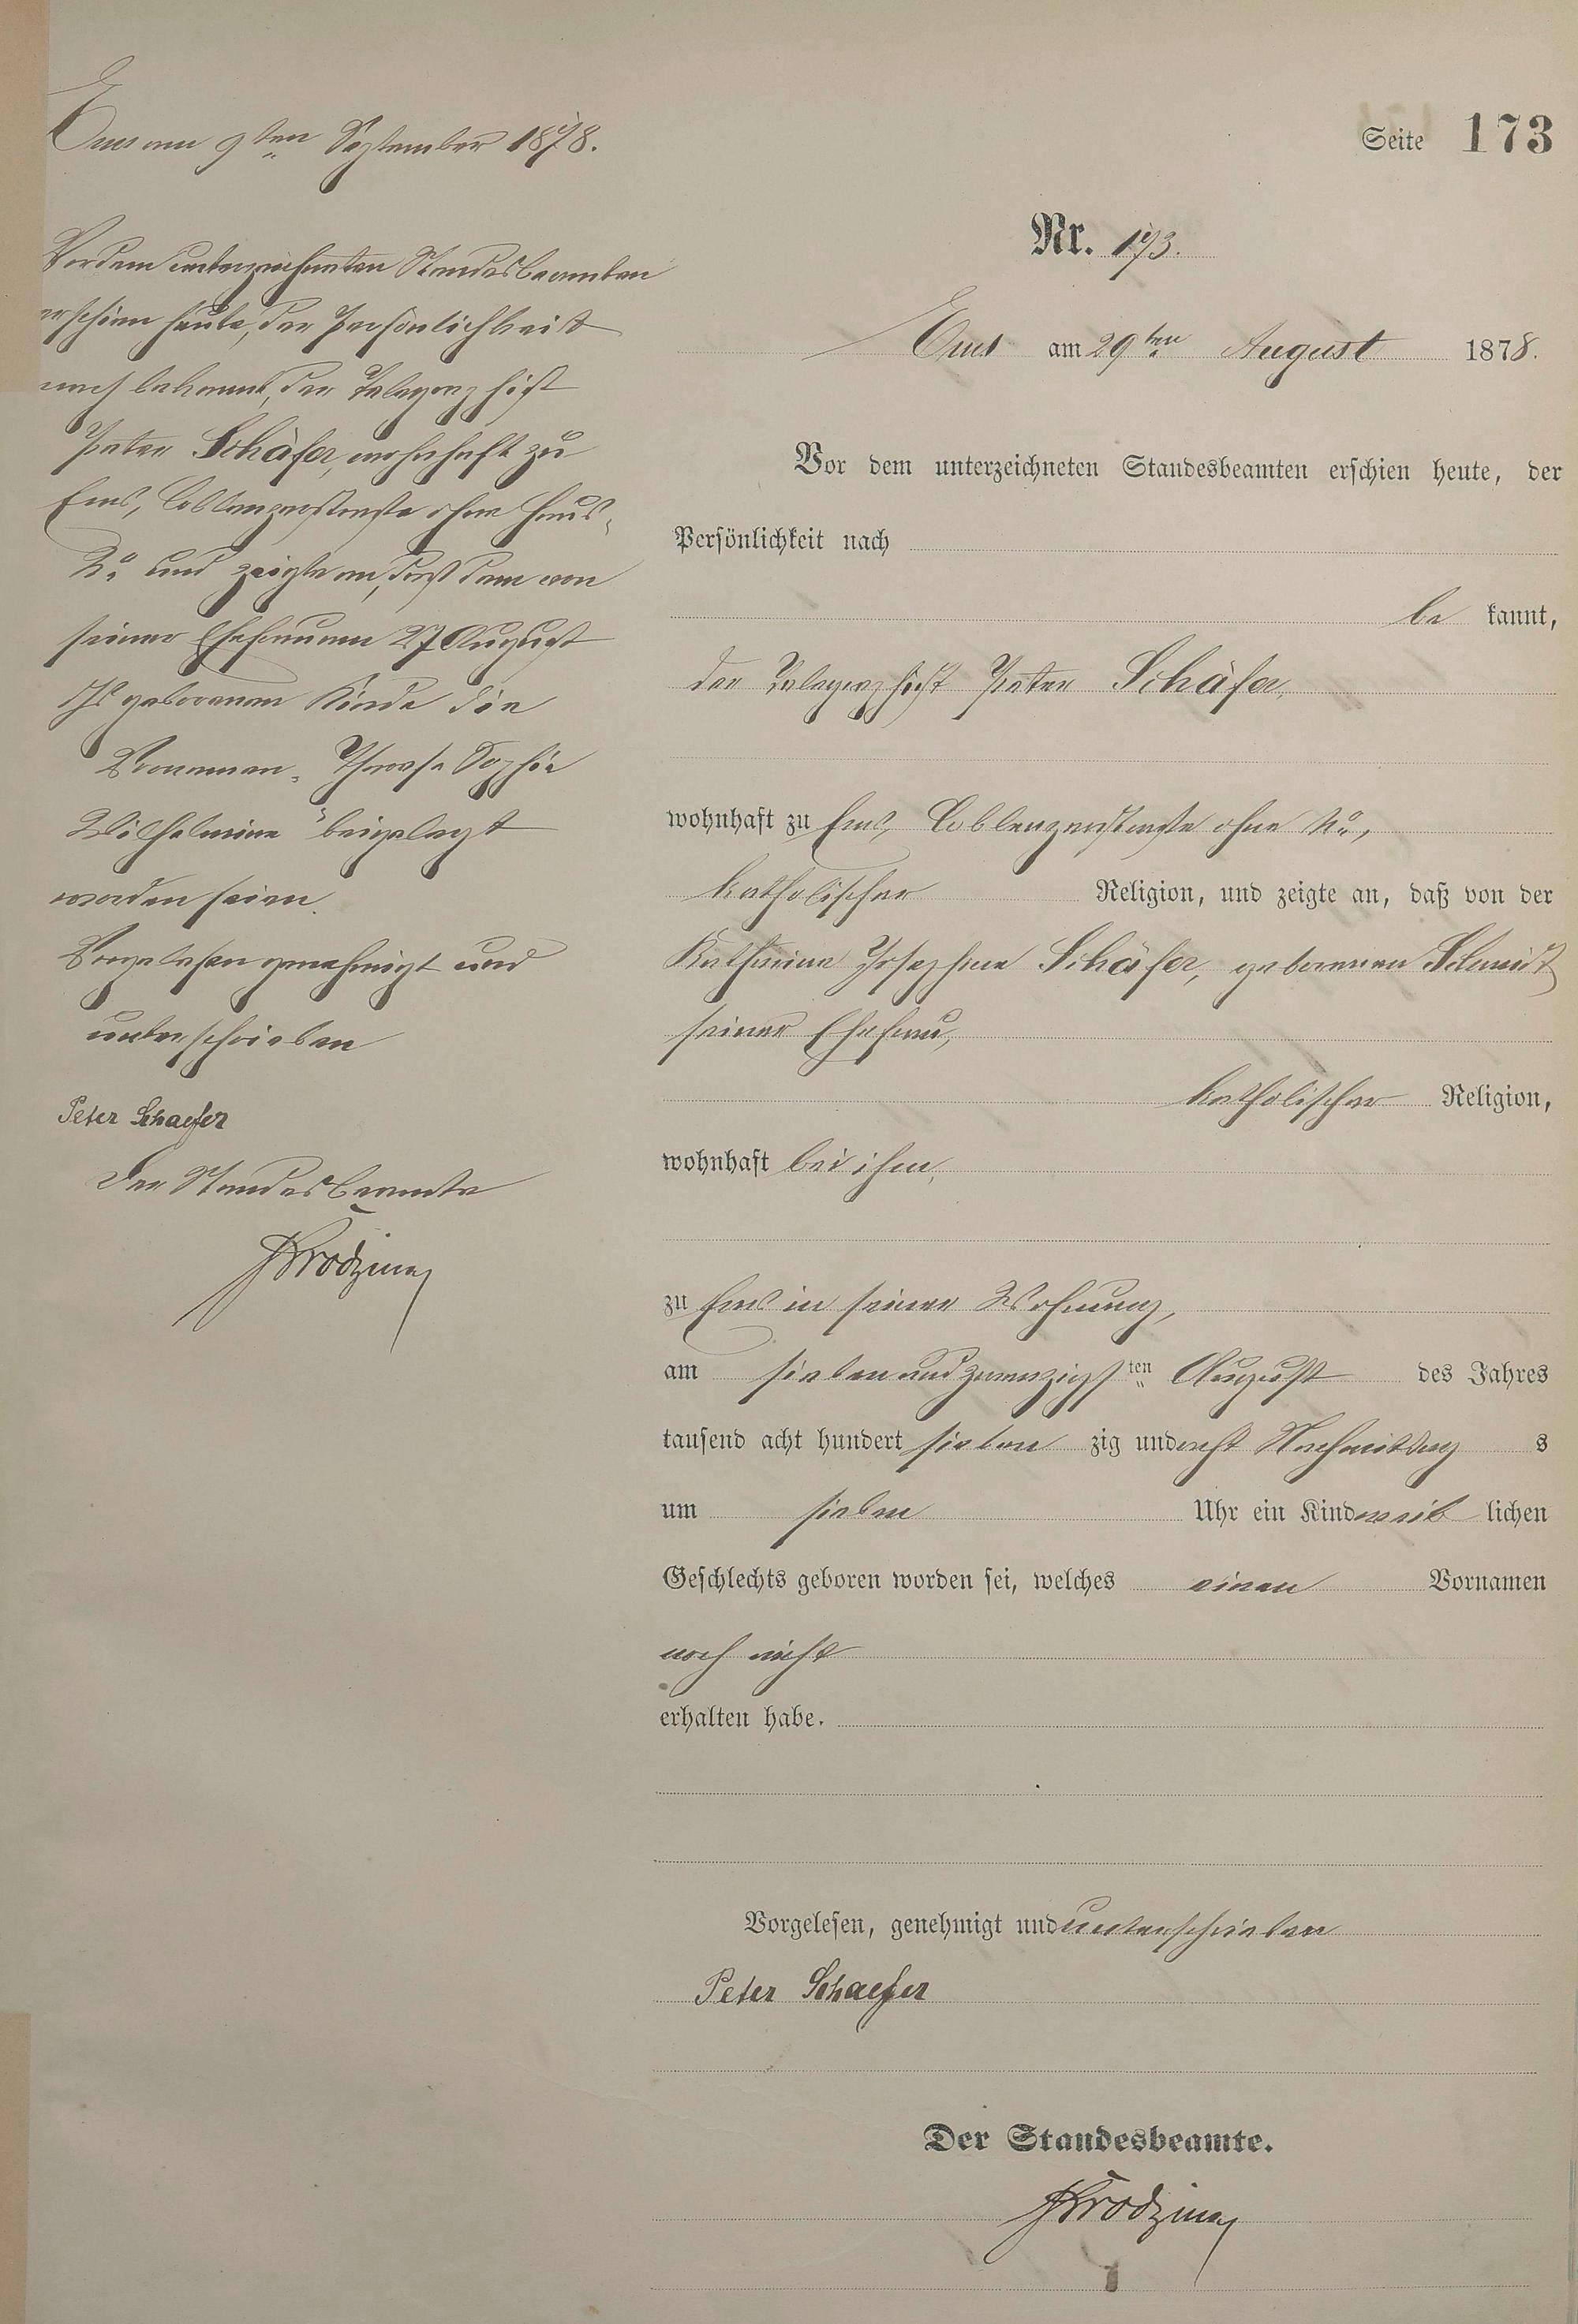 Ems am 9ten September 1878.
Vor dem unterzeichneten Standesbeamten
erschien heute, der Persönlichkeit
nach bekannt, der Telegraphist
Peter Schäfer, wohnhaft zu
Ems, Coblenzerstraße ohne Haus-
No und zeigte an, daß dem von
seiner Ehefrau am 27 August
geborenen Kinde die
Vornamen Therese Sophie
Wilhelmine beigelegt
worden seien.
Vorgelesen genehmigt und
unterschrieben
Peter Schaefer
Der Standesbeamte
Seite 173
Nr. 173.
Ems am 29ten August 1878.
Vor dem unterzeichneten Standesbeamten erschien heute, der
Persönlichkeit nach
be kannt,
der Telegraphist Peter Schäfer,
wohnhaft zu Ems, Coblenzerstraße ohne No,
katholischer Religion, und zeigte an, daß von der
Katharina Josephine Schäfer, geborenen Schmidt
seiner Ehefrau,
katholischer Religion,
wohnhaft bei ihm,
zu Ems in seiner Wohnung,
am siebenundzwanzigsten August des Jahres
tausend acht hundert sieben zig und acht Nachmittag s
um sieben Uhr ein Kind weib lichen
Geschlechts geboren worden sei, welches einen Vornamen
noch nicht
erhalten habe.
Vorgelesen, genehmigt und unterschrieben
Peter Schaefer
Der Standesbeamte.